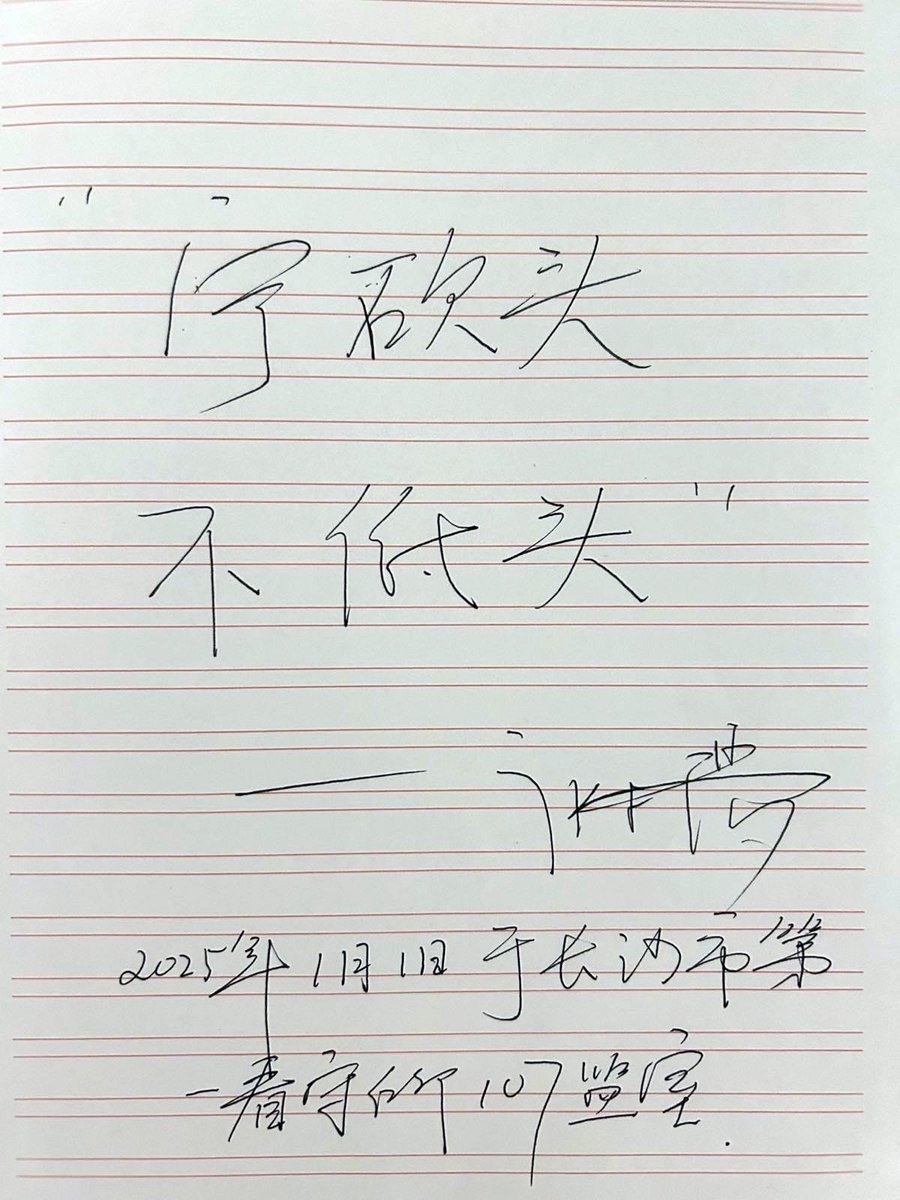 “宁砍头
不低头”
—
2025年1月1日于长沙市第
一看守所107监室.